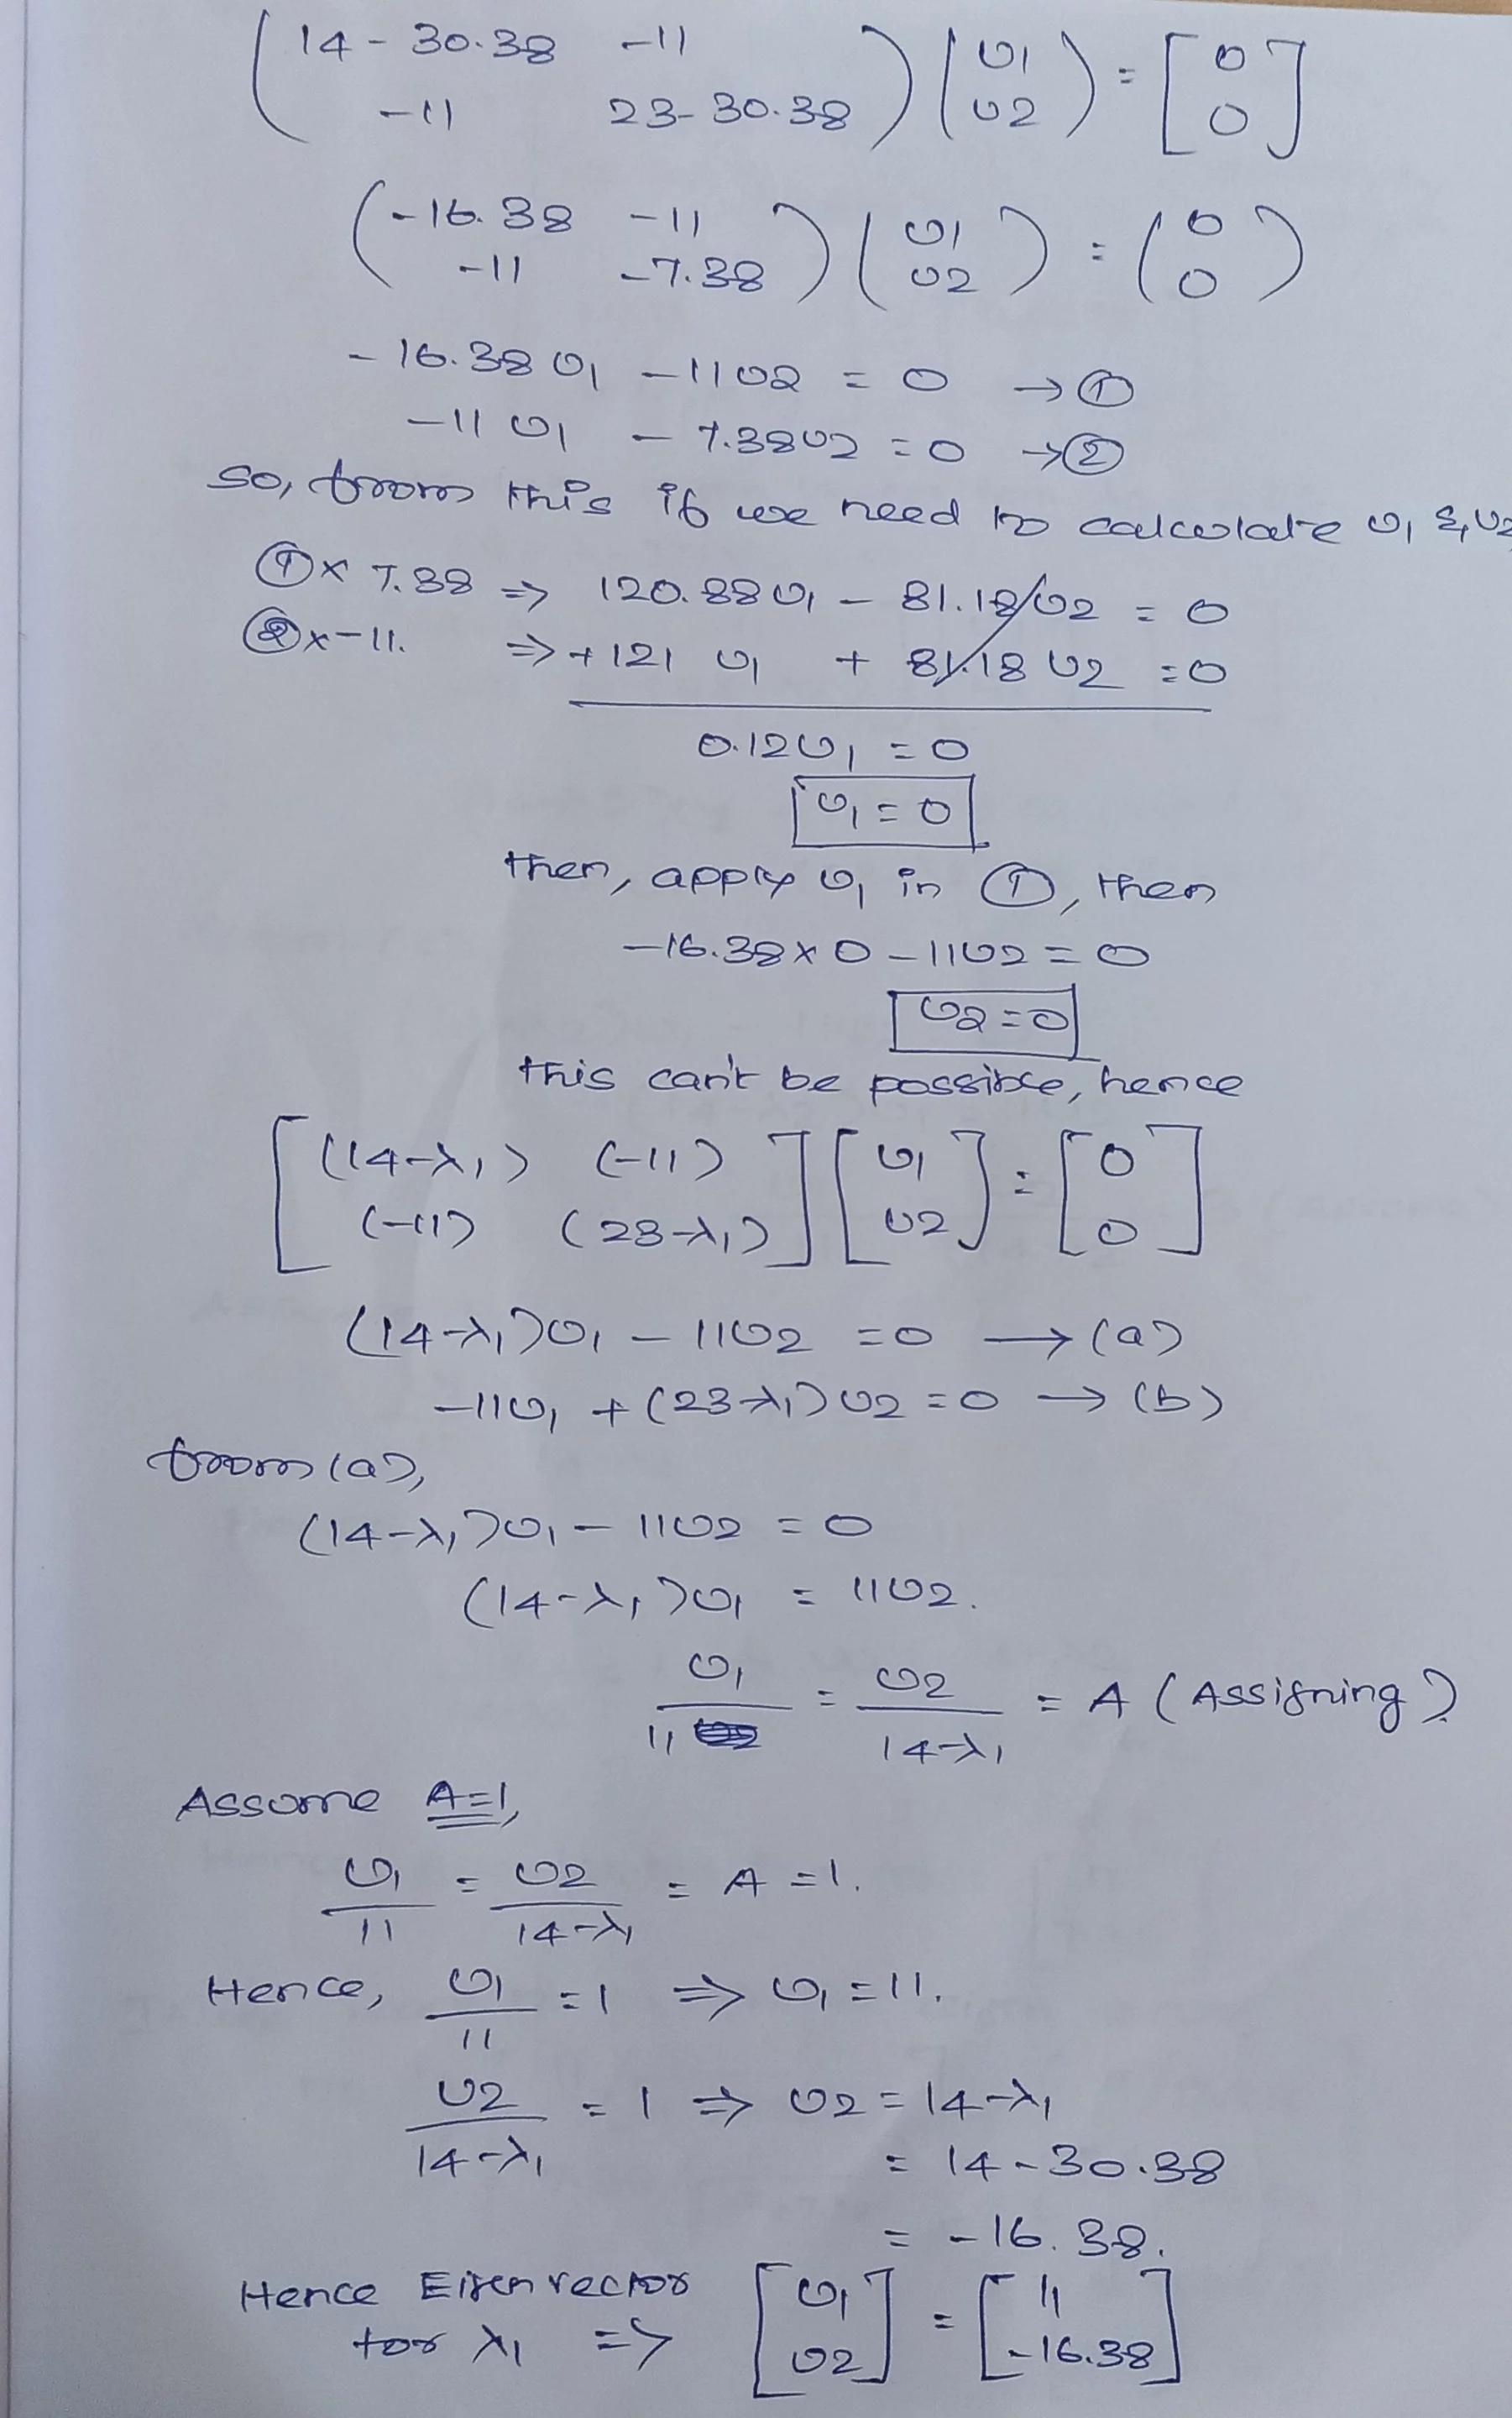 (14-30.38 -11
-11 23-30.38) (υ1
υ2) = [0
0]
(-16.38 -11
-11 -7.38) (υ1
υ2) = (0
0)
-16.38 υ1 - 11υ2 = 0 → ①
-11 υ1 - 7.38υ2 = 0 → ②
so, from this if we need to calculate υ1 & υ2
① x 7.38 ⇒ 120.88υ1 - 81.18υ2 = 0
② x -11. ⇒ +121 υ1 + 81.18 υ2 = 0
0.12υ1 = 0
υ1 = 0
then, apply υ1 in ①, then
-16.38 x 0 - 11υ2 = 0
υ2 = 0
this can't be possible, hence
[(14-λ1) (-11)
(-11) (23-λ1)] [υ1
υ2] = [0
0]
(14-λ1)υ1 - 11υ2 = 0 → (a)
-11υ1 + (23-λ1)υ2 = 0 → (b)
from (a),
(14-λ1)υ1 - 11υ2 = 0
(14-λ1)υ1 = 11υ2.
υ1/11 = υ2/14-λ1 = A (Assigning)
Assume A=1,
υ1/11 = υ2/14-λ1 = A = 1.
Hence, υ1/11 = 1 ⇒ υ1 = 11.
υ2/14-λ1 = 1 ⇒ υ2 = 14-λ1
= 14-30.38
= -16.38.
Hence Eigen vector
for λ1 ⇒ [υ1
υ2] = [11
-16.38]